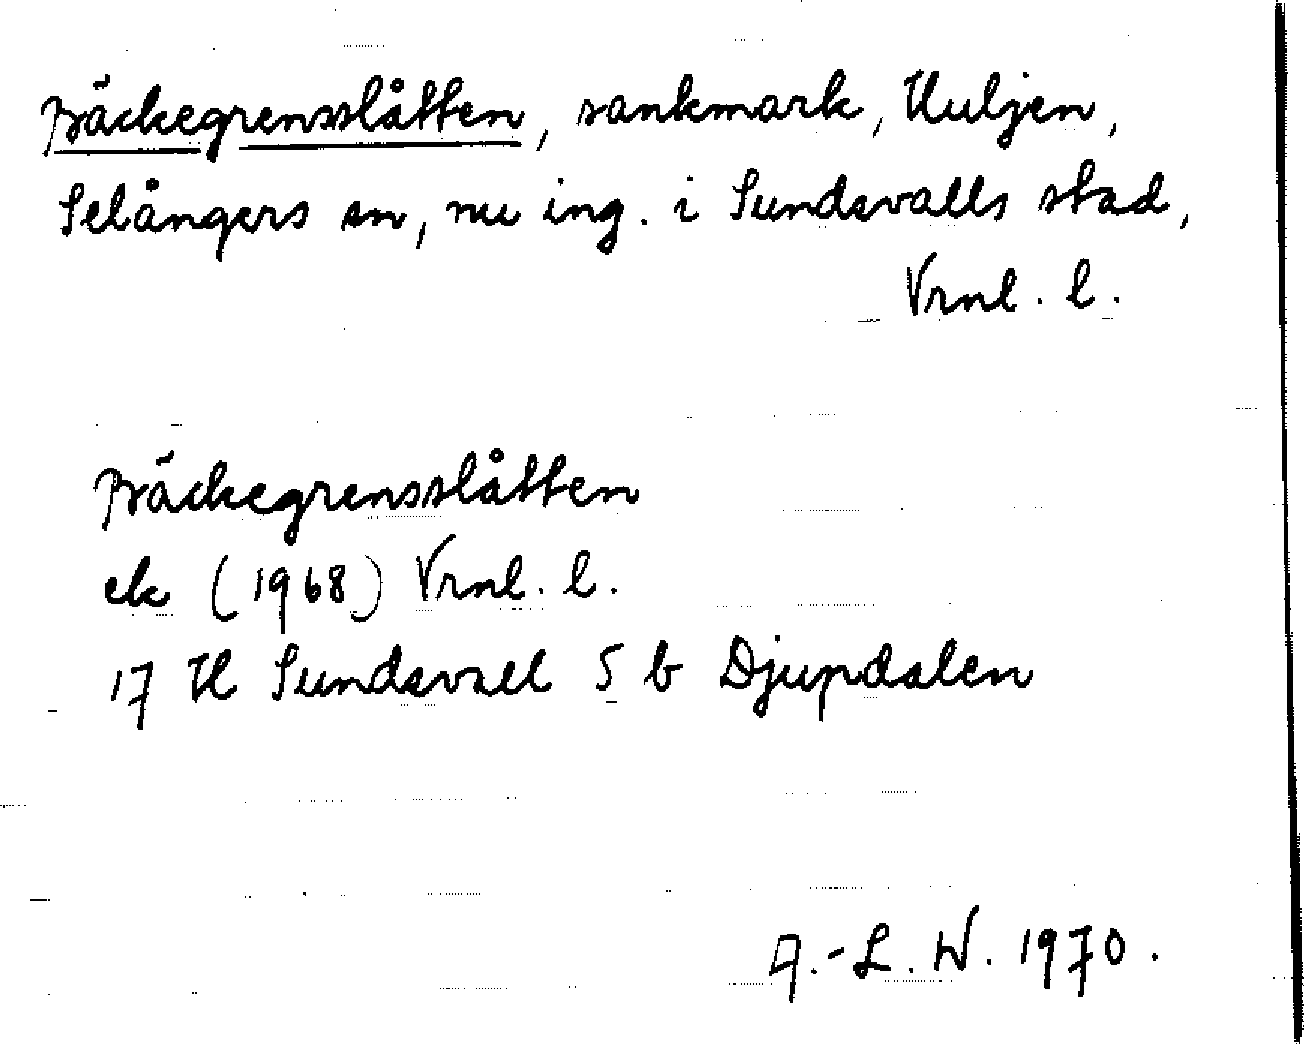 Bäckegrensslåtten, sankmark, Huljen,
Selångers sn, nu ing. i Sundsvalls stad,
Vrnl. l.
Bäckegrensslåtten
ek (1968) Vrnl. l.
17 H Sundsvall 5 b Djupdalen
A.-L. W. 1970.